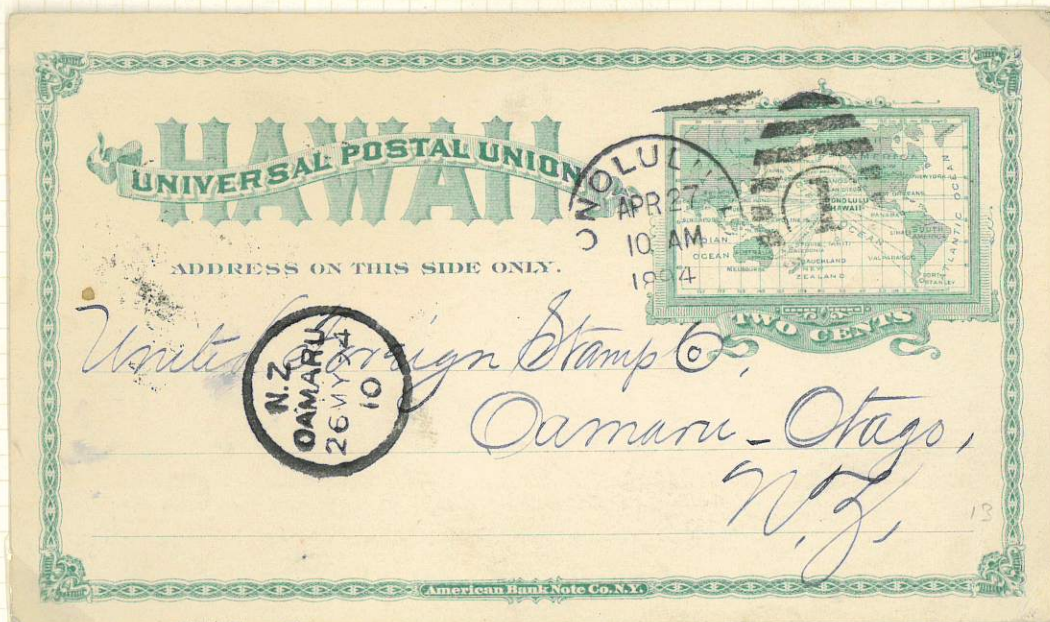 HAWAII
UNIVERSAL POSTAL UNION
ADDRESS ON THIS SIDE ONLY.
ONOLULU
APR 27
10 AM
1894
1
AMERICA
HONOLULU
HAWAII
OCEAN
INDIAN
OCEAN
AUCKLAND
NEW
ZEALAND
VALPARAISO
SOUTH
ATLANTIC OCEAN
TWO CENTS
United Foreign Stamp Co,
Oamaru - Otago,
N.Z,
N.Z
OAMARU
26 MY 94
10
13
American Bank Note Co. N.Y.